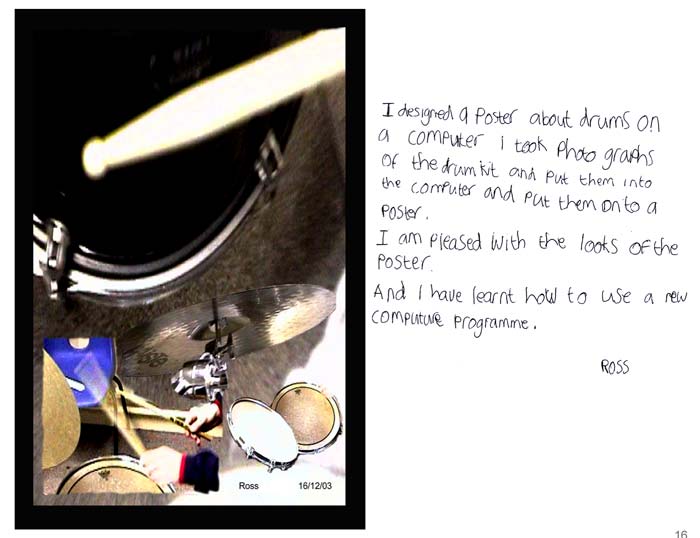 I designed a Poster about drums on
a computer I took Photo graphs
of the drumkit and Put them into
the computer and Put them onto a
Poster.
I am Pleased with the looks of the
Poster.
And I have learnt how to use a new
computure Programme.
ROSS
Ross 16/12/03
16